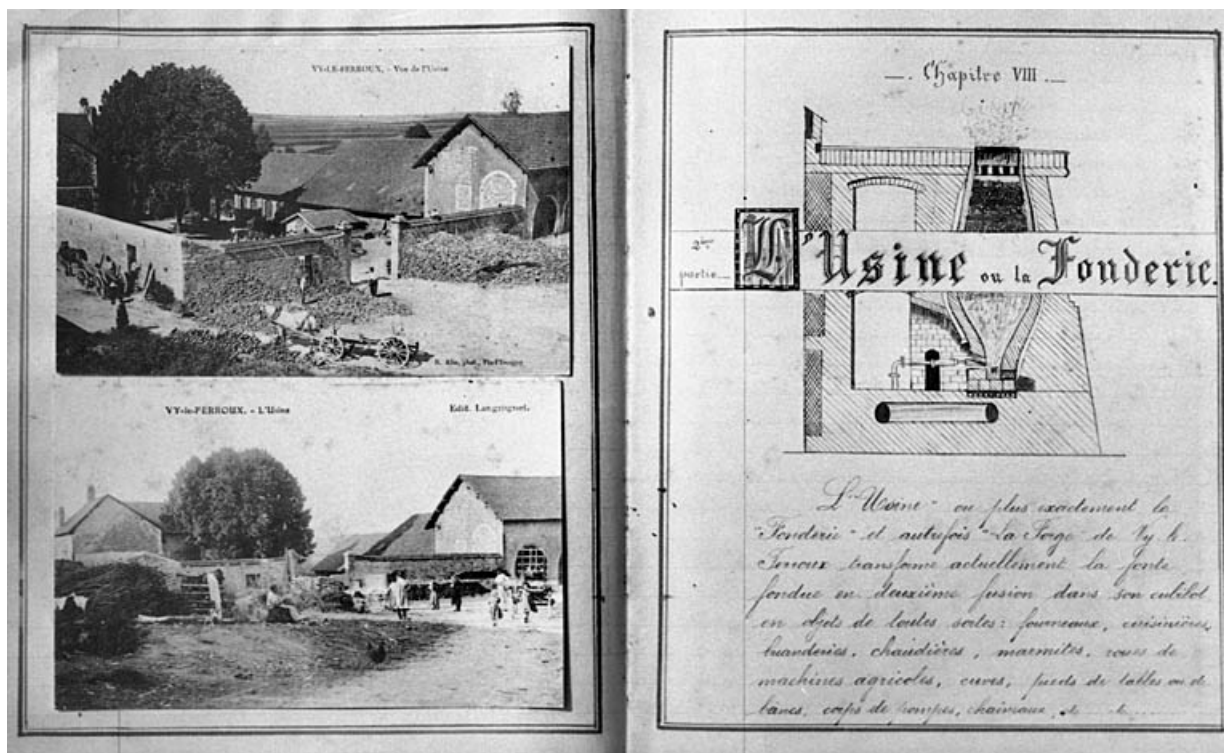 VY-LE-FERROUX. - Vue de l'Usine
VY-le-FERROUX. - L'Usine
Edit. Langrognet.
Chapitre VIII
2ème
partie
L'Usine ou la Fonderie.
L'"Usine" ou plus exactement la
"Fonderie" et autrefois "La Forge" de Vy le
Ferroux transforme actuellement la fonte
fondue en deuxième fusion dans son cubilot
en objets de toutes sortes: fourneaux, cuisinières,
buanderies, chaudières, marmites, roues de
machines agricoles, cuves, pieds de tables ou de
bancs, corps de pompes, chaineaux,